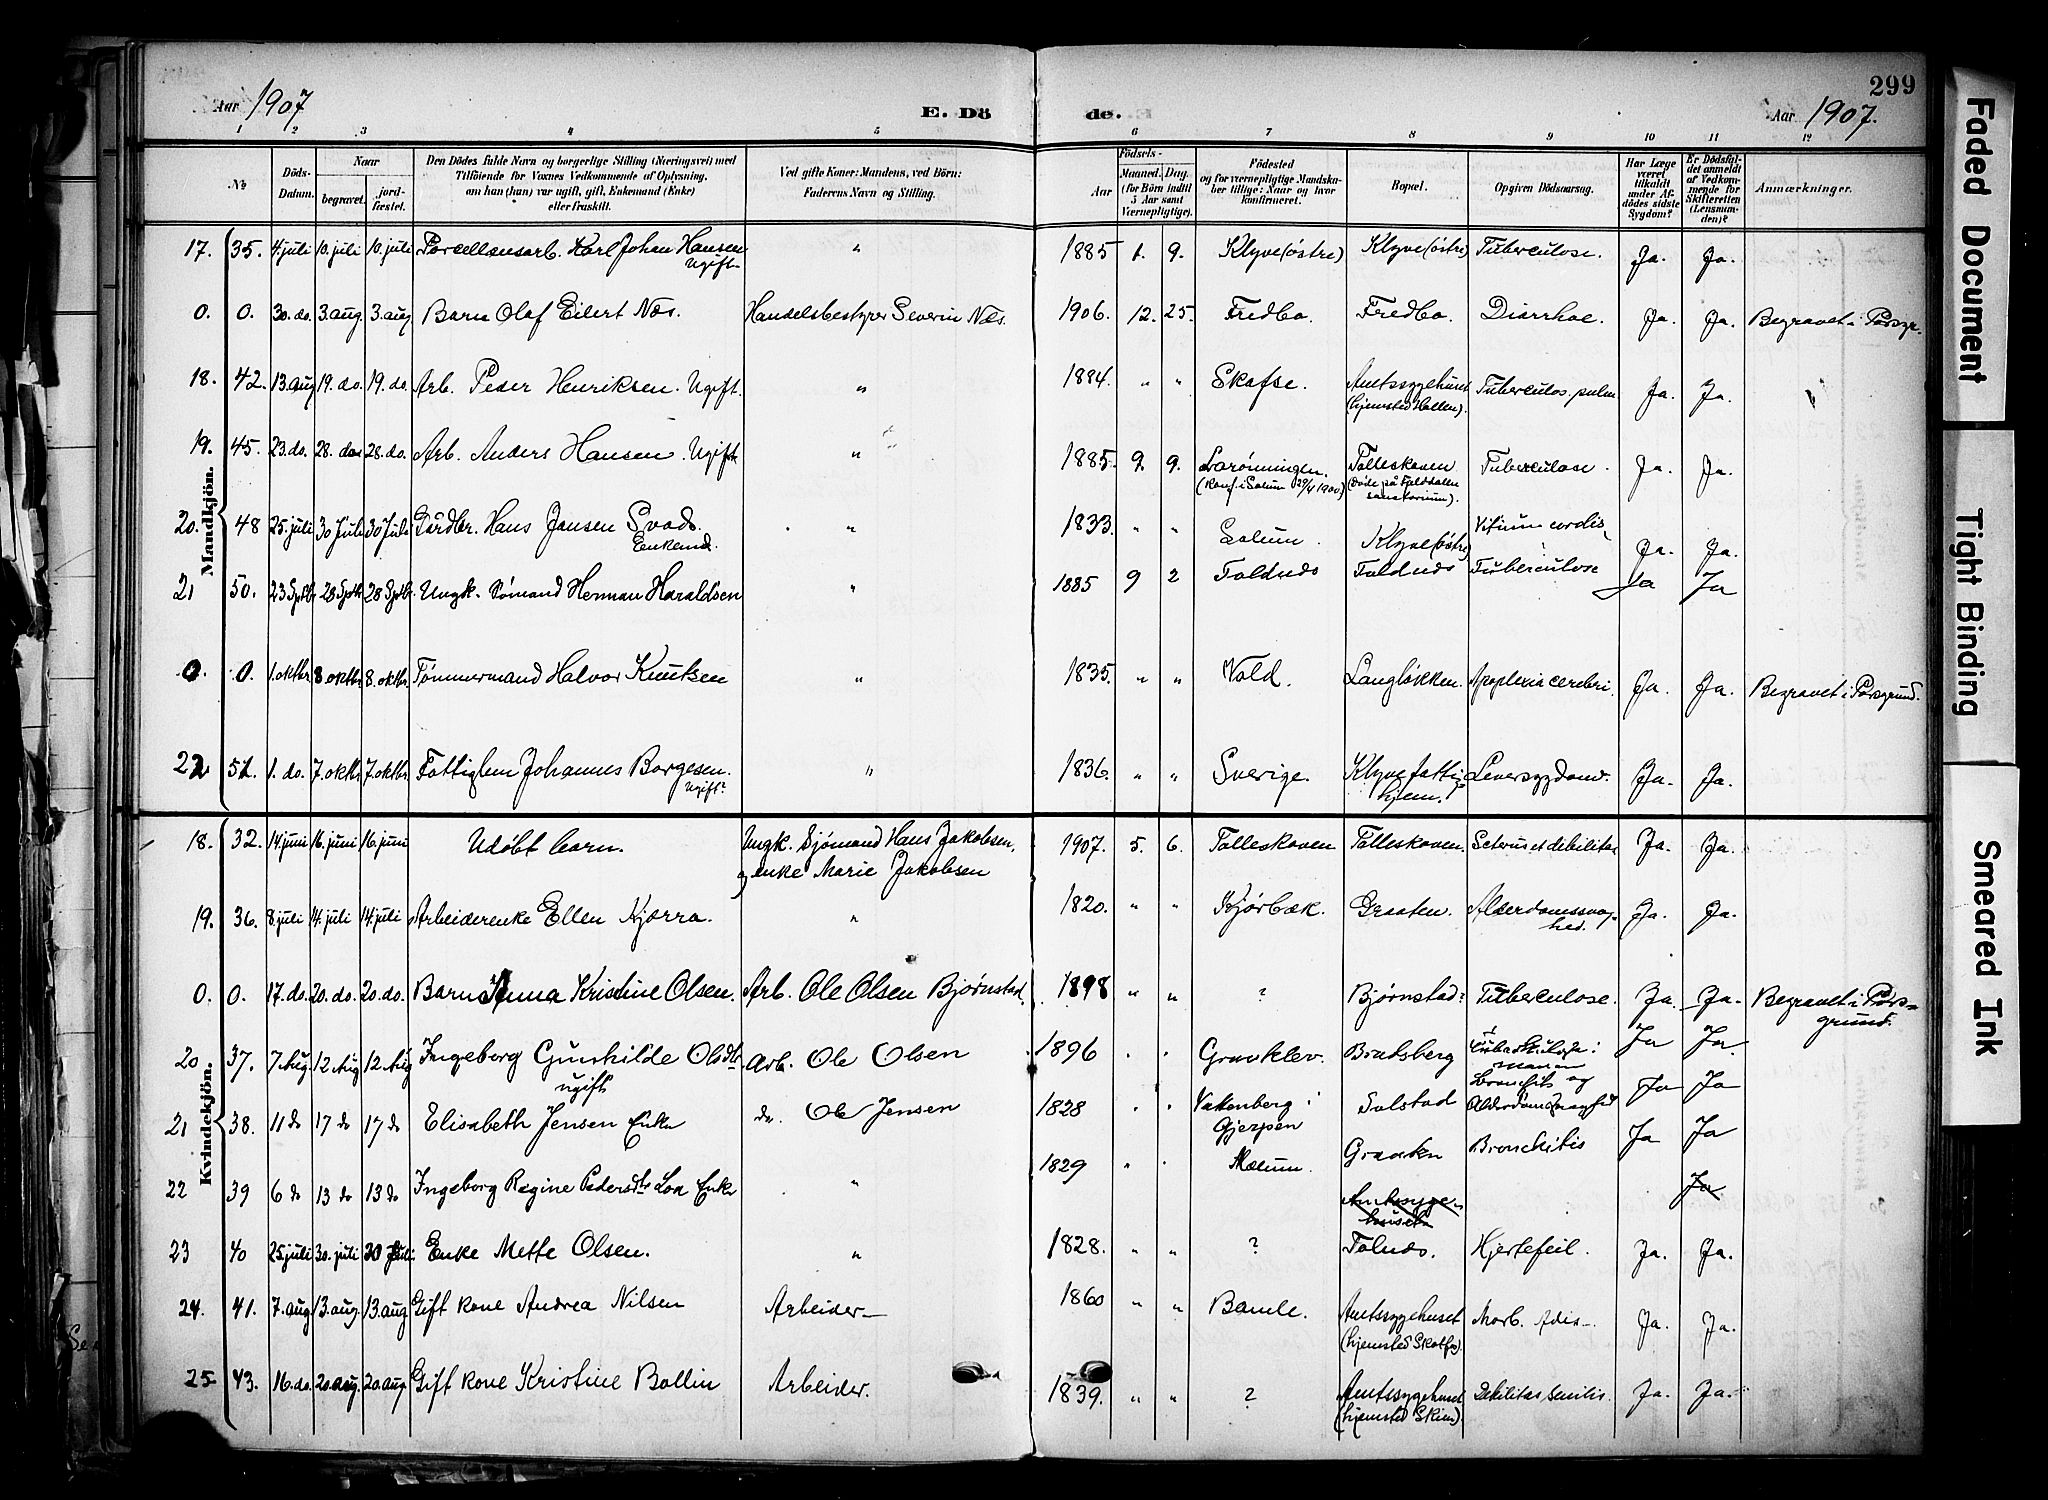 299
Aar 1907
E. Dö de.
Aar 1907.
1 2 3 4 5 6 7 8 9 10 11 12
No
Döds-Datum.
Naar
begravet.
jord-fæstet.
Den Dödes fulde Navn og borgerlige Stilling (Næringsvei) med
Tilföiende for Voxnes Vedkommende af Oplysning,
om han (hun) var ugift, gift, Enkemand (Enke)
eller fraskilt.
Ved gifte Koner: Mandens, ved Börn:
Faderens Navn og Stilling.
Födsels-
Aar
Maaned. Dag.
(for Börn indtil
5 Aar samt
Værnepligtige).
Födested
og for værnepligtige Mandska-
ber tillige: Naar og hvor
konfirmeret.
Bopæl.
Opgiven Dödsaarsag.
Har Læge
været
tilkaldt
under Af-
dødes sidste
Sygdom?
Er Dödsfal-
det anmeldt
af Vedkom-
mende for
Skifteretten
(Lensman-
den)?
Anmærkninger.
Mandkjön.
17. 35. 4. juli 10. juli 10. juli Porcellænsarb. Karl Johan Hansen " 1885 1. 9. Klyve (østre) Klyve (østre) Tuberculose. Ja. Ja.
Ugift.
0. 0. 30. do. 3. aug. 3. aug. Barn Olaf Eilert Næs. Handelsbestyrer Severin Næs. 1906. 12. 25. Fredbo. Fredbo. Diarrhoe. Ja. Ja. Begravet i Porsgr.
18. 42. 13. aug 19. do. 19. do. Arb. Peder Henriksen. Ugift. " 1884. " " Skafse. Amtssygehuset Tuberculos. pulm. Ja. Ja.
(hjemsted Hallen).
19. 45. 23. do. 28. do. 28. do. Arb. Anders Hansen. Ugift. " 1885. 9. 9. Larønningen. Tolleskoven Tuberculose. Ja. Ja.
(Konf. i Solum 29/4 1900) (Døde på sanatorium).
20. 48 25. juli 30 Juli 30 Juli Gårdbr. Hans Jansen Svads. " 1833 " " Solum. Klyve (østre) Vitium cordis Ja. Ja.
Enkemd.
21 50. 23 Sptb. 28 Sptb. 28 Sptb. Ungk. Sømand Herman Haraldsen " 1885 9 2 Toldnds Toldnds Tuberculose Ja Ja
0. 0. 1. oktbr. 8. oktbr. 8. oktbr. Tømmermand Halvor Knutsen " 1835. " " Vold. Langløkken. Apoplexia cerebri. Ja. Ja. Begravet i Porsgrund.
22 51. 1. do. 7. oktbr. 7. oktbr. Fattiglem Johannes Borgesen. " 1836. " " Sverige. Klyve fattig- Leversygdom. Ja. Ja.
Ugift? hjem.
Kvindekjön.
18. 32. 14. juni 16. juni 16. juni Udøbt barn. Ungk. Sjømand Hans Jakobsen, 1907. 5. 6. Tolleskoven Tolleskoven. debilitas Ja. Ja.
og enke Marie Jakobsen
19. 36. 8. juli 14. juli 14. juli Arbeiderenke Ellen Kjørra. " 1820. " " Kjørbæk. Graaten. Alderdomssvag- Ja. Ja.
hed.
0. 0. 17. do. 20. do. 20. do. Barn Anna Kristine Olsen. Arb. Ole Olsen Bjørnstad. 1898 " " ? Bjørnstad. Tuberculose. Ja. Ja. Begravet i Pors-
grund.
20. 37. 7 Aug 12 Aug 12 Aug Ingeborg Gunhilde Olsdtr Arb. Ole Olsen 1896 " " Gravklev. Bradsberg Ja Ja.
ugift
21 38. 11 do 17 do 17 do Elisabeth Jensen Enke do. Ole Jensen 1828 " " Valenberg i Solstad Bronchitis og Ja Ja
Gjerpen Alderdomssvaghed
22 39 6 do 13 do 13 do Ingeborg Regine Pedersdtr Enke " 1829 " " Mælum. Graaten Bronchitis Ja Ja
Amtssyge- Ja
huset
23 40 25. juli 30. juli 30 Juli Enke Mette Olsen. " 1828. " " ? Tolnds. Hjertefeil. Ja. Ja.
24. 41. 7. aug 13. aug. 13. aug Gift kone Andrea Nilsen Arbeider 1860 " " Bamle. Amtssygehuset Morb. Adis Ja. Ja.
(hjemsted Skotfos).
25 43. 16. do. 20. aug 20. aug Gift kone Kristine Bollin Arbeider. 1839. " " ? Amtssygehuset Debilitas senilis. Ja. Ja.
(hjemsted Skien).
Faded Document
Tight Binding
Smeared Ink